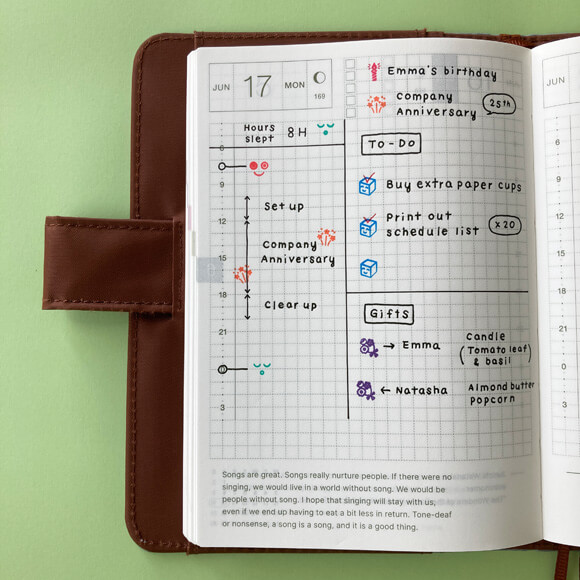 JUN 17 MON
169
Emma's birthday
Company
Anniversary
25th
Hours
slept
8H
6
9
12
15
18
21
0
3
Set up
Company
Anniversary
Clear up
TO-DO
Buy extra paper cups
Print out
schedule list
x20
Gifts
→ Emma
Candle
(Tomato leaf
& basil)
← Natasha
Almond butter
popcorn
Songs are great. Songs really nurture people. If there were no
singing, we would live in a world without song. We would be
people without song. I hope that singing will stay with us,
even if we end up having to eat a bit less in return. Tone-deaf
or nonsense, a song is a song, and it is a good thing.
JUN
6
9
12
15
18
21
0
3